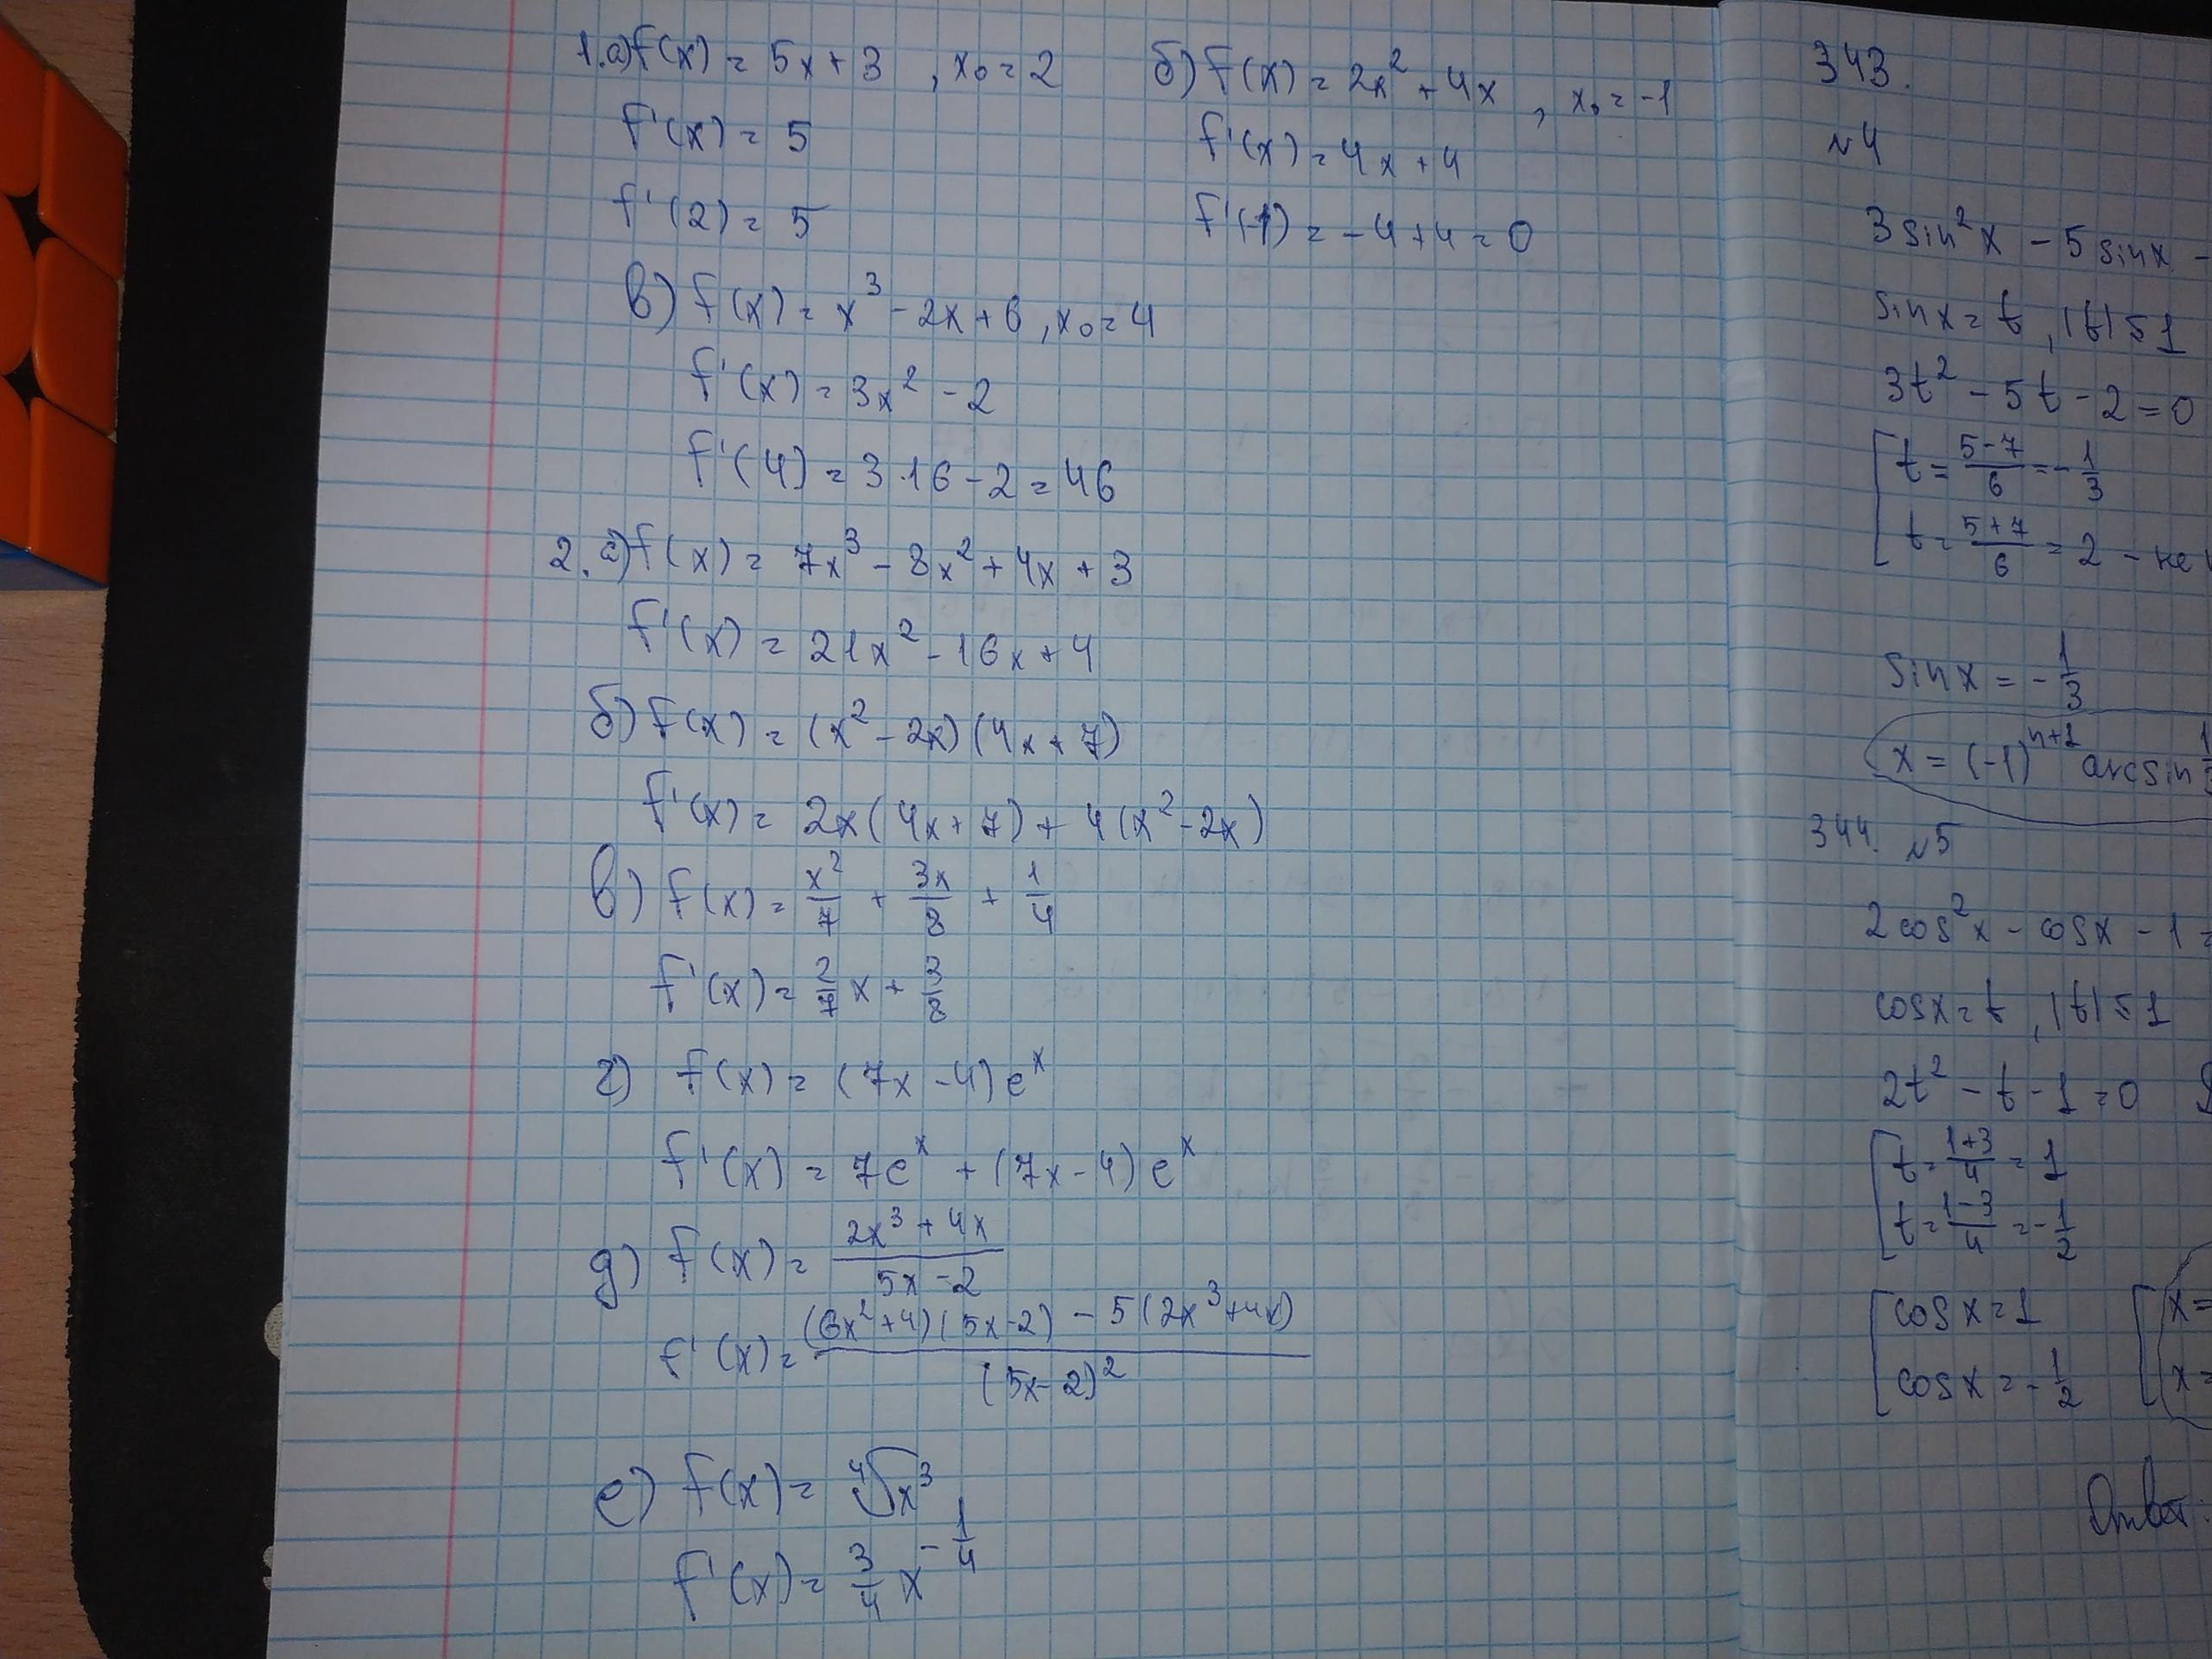 1. а) f(x) = 5x + 3 , x₀ = 2
f'(x) = 5
f'(2) = 5
б) f(x) = 2x² + 4x , x₀ = -1
f'(x) = 4x + 4
f'(-1) = -4 + 4 = 0
в) f(x) = x³ - 2x + 6 , x₀ = 4
f'(x) = 3x² - 2
f'(4) = 3·16 - 2 = 46
2. а) f(x) = 7x³ - 8x² + 4x + 3
f'(x) = 21x² - 16x + 4
б) f(x) = (x² - 2x)(4x + 7)
f'(x) = 2x(4x + 7) + 4(x² - 2x)
в) f(x) = x²/7 + 3x/8 + 1/4
f'(x) = 2/7 x + 3/8
г) f(x) = (7x - 4)eˣ
f'(x) = 7eˣ + (7x - 4)eˣ
д) f(x) = (2x³ + 4x)/(5x - 2)
f'(x) = ((6x² + 4)(5x - 2) - 5(2x³ + 4x))/(5x - 2)²
е) f(x) = ⁴√x³
f'(x) = 3/4 x^(-1/4)
343.
№4
3 sin²x - 5 sinx -
sinx = t , |t| ≤ 1
3t² - 5t - 2 = 0
t = (5-7)/6 = -1/3
t = (5+7)/6 = 2 - не
sinx = -1/3
x = (-1)ⁿ⁺¹ arcsin 1/3
344. №5
2 cos²x - cosx - 1 =
cosx = t , |t| ≤ 1
2t² - t - 1 = 0
t = (1+3)/4 = 1
t = (1-3)/4 = -1/2
cosx = 1
cosx = -1/2
x =
x =
Ответ.